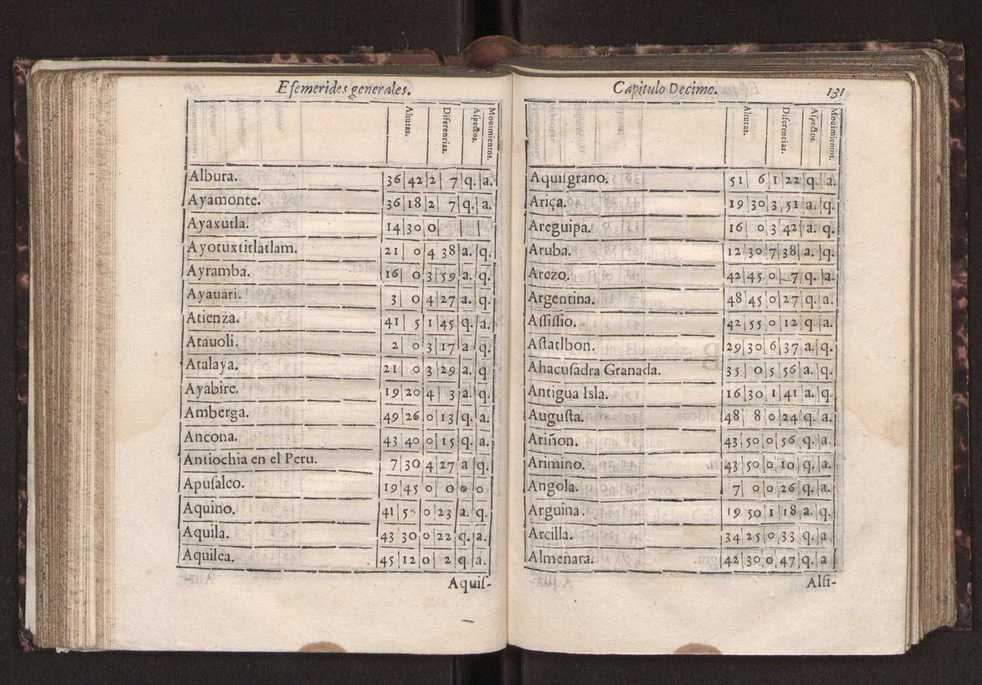 Efemerides generales.
Alturas. Diferencias. Aspectos. Mouimientos.
Albura. 36 42 2 7 q. a.
Ayamonte. 36 18 2 7 q. a.
Ayaxutla. 14 30 0
Ayotuxtitlatlam. 21 0 4 38 a. q.
Ayramba. 16 0 3 59 a. q.
Ayauari. 3 0 4 27 a. q.
Atienza. 41 5 1 45 q. a.
Atauoli. 2 0 3 17 a q.
Atalaya. 21 0 3 29 a. q
Ayabire. 19 20 4 3 a. q.
Amberga. 49 26 0 13 q. a.
Ancona. 43 40 0 15 q. a.
Antiochia en el Peru. 7 30 4 27 a q.
Apusalco. 19 45 0 0 0 0
Aquino. 41 5 0 23 a. q.
Aquila. 43 30 0 22 q. a.
Aquilea. 45 12 0 2 q. a.
Aquis-
Capitulo Decimo. 131
Alturas. Diferencias. Aspectos. Mouimientos.
Aquisgrano. 51 6 1 22 q. a.
Ariça. 19 30 3 51 a. q.
Areguipa. 16 0 3 42 a. q.
Aruba. 12 30 7 38 a. q.
Arezo. 42 45 0 7 q. a.
Argentina. 48 45 0 27 q. a.
Assissio. 42 55 0 12 q a.
Astatlbon. 29 30 6 37 a. q.
Ahacusadra Granada. 35 0 5 56 a. q.
Antigua Isla. 16 30 1 41 a. q.
Augusta. 48 8 0 24 q. a.
Ariñon. 43 50 0 56 q. a.
Arimino. 43 50 0 10 q. a.
Angola. 7 0 0 26 q. a.
Arguina. 19 50 1 18 a. q.
Arcilla. 34 25 0 33 q. a.
Almenara. 42 30 0 47 q. a
Alsi-